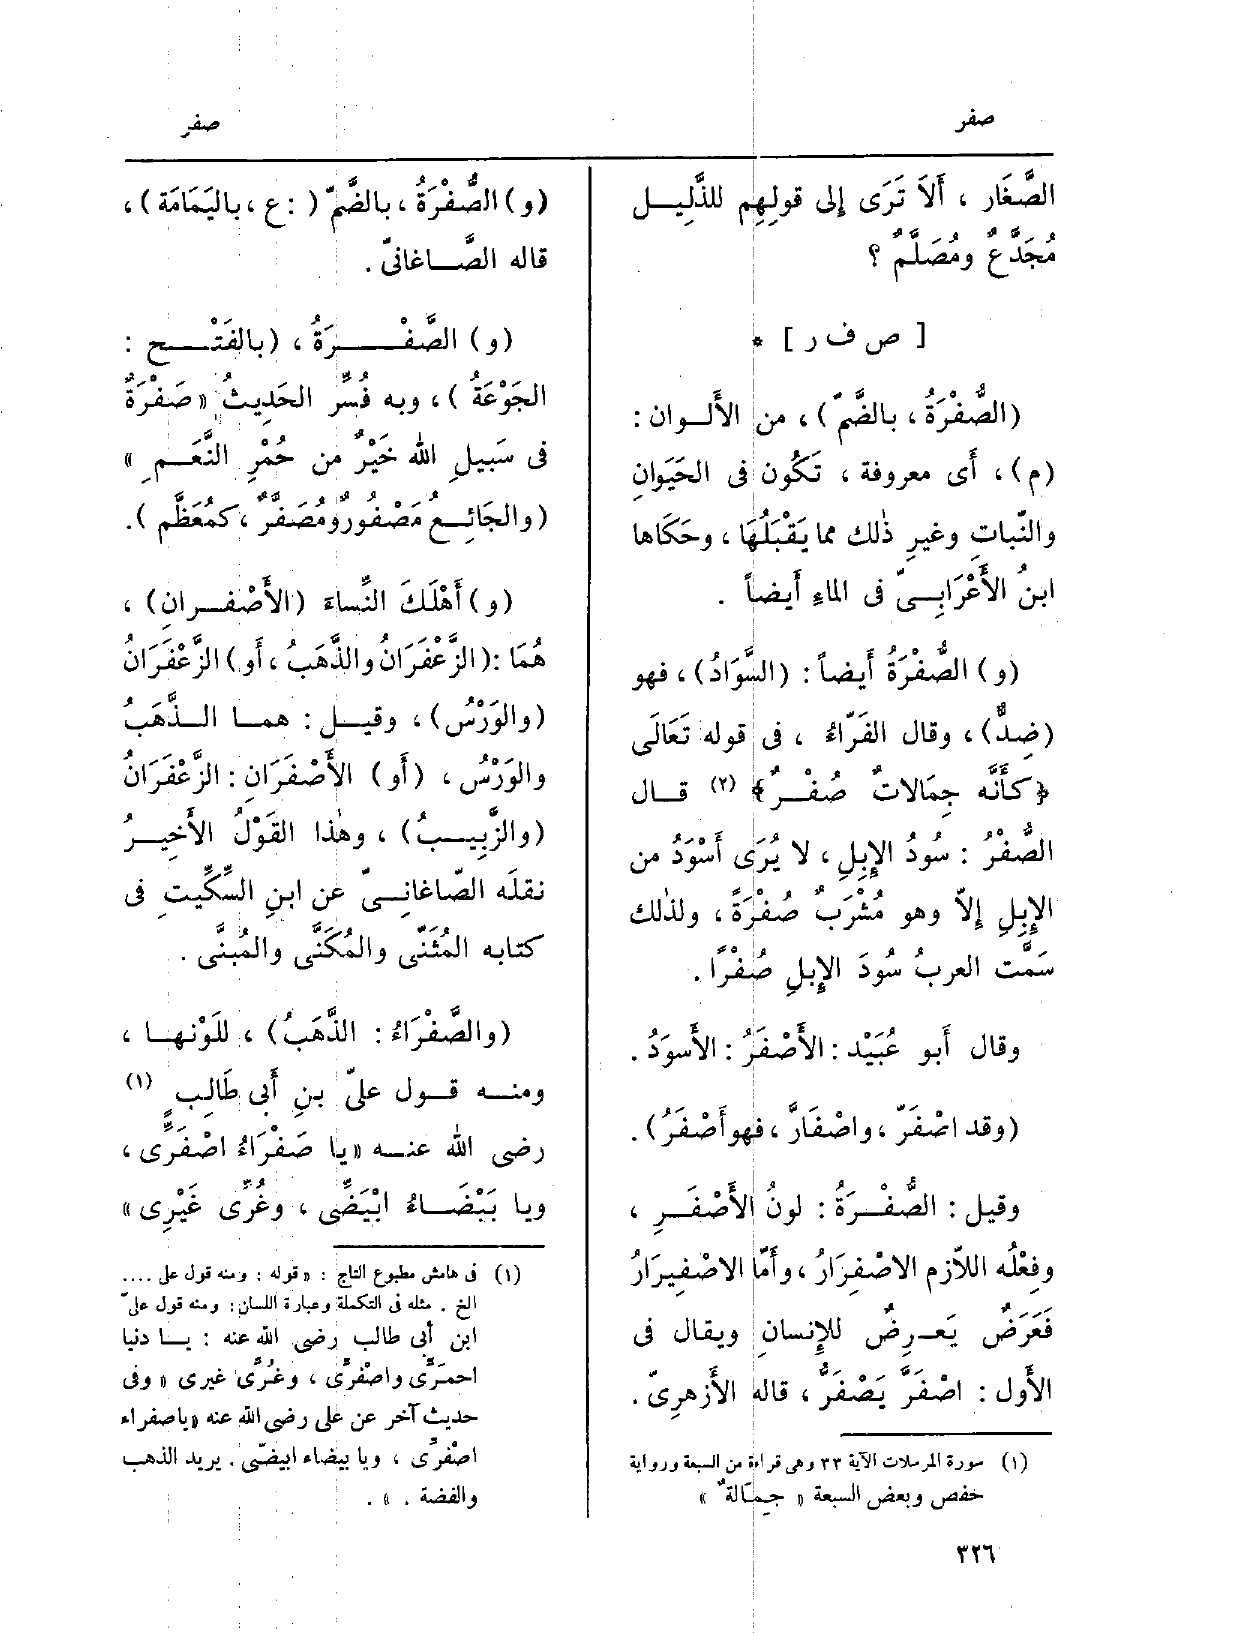 صفر
صفر
الصَّغَار ، أَلاَ تَرَى إلى قولِهِم للذَّلِيل
مُجَدَّعٌ ومُصَلَّمٌ ؟
[ ص ف ر ] *
(الصُّفْرَةُ ، بالضَّمّ) ، من الأَلوان :
(م) ، أَى معروفة ، تَكُون فى الحَيَوانِ
والنَّباتِ وغيرِ ذٰلك مما يَقْبَلُهَا ، وحَكَاها
ابنُ الأَعْرَابِىّ فى الماءِ أَيضاً .
(و) الصُّفْرَةُ أَيضاً : (السَّوَادُ) ، فهو
(ضِدٌّ) ، وقال الفَرّاءُ ، فى قوله تَعَالَى
﴿كأَنَّه جِمَالاتٌ صُفْرٌ﴾ (٢) قال
الصُّفْرُ : سُودُ الإِبِلِ ، لا يُرَى أَسْوَدُ من
الإِبِلِ إِلاّ وهو مُشْرَبٌ صُفْرَةً ، ولذٰلك
سَمَّت العربُ سُودَ الإِبلِ صُفْرًا .
وقال أَبو عُبَيْد : الأَصْفَرُ : الأَسوَدُ .
(وقد اصْفَرّ ، واصْفَارَّ ، فهو أَصْفَرُ) .
وقيل : الصُّفْرَةُ : لونُ الأَصْفَرِ ،
وفِعْلُه اللاّزم الاصْفِرَارُ ، وأَمّا الاصْفِيرَارُ
فَعَرَضٌ يَعرِضُ للإِنسانِ ويقال فى
الأَول : اصْفَرَّ يَصْفَرُّ ، قاله الأَزهرىّ .
(١) سورة المرسلات الآية ٣٣ وهى قراءة من السبعة ورواية
حفص وبعض السبعة « جِمَالَةٌ »
(و) الصُّفْرَةُ ، بالضَّمّ ( : ع ، باليَمَامَة ) ،
قاله الصَّاغانىّ .
(و) الصَّفْرَةُ ، (بالفَتْح :
الجَوْعَةُ ) ، وبه فُسِّر الحَدِيثُ « صَفْرَةٌ
فى سَبِيلِ اللهِ خَيْرٌ من حُمْرِ النَّعَمِ »
(والجَائِعُ مَصْفُورٌ ومُصَفَّرٌ ، كمُعَظَّم ) .
(و) أَهْلَكَ النِّساءَ (الأَصْفَرانِ) ،
هُمَا : (الزَّعْفَرَانُ والذَّهَبُ ، أَو) الزَّعْفَرَانُ
(والوَرْسُ) ، وقيل : هما الذَّهَبُ
والوَرْسُ ، (أَو) الأَصْفَرَانِ : الزَّعْفَرَانُ
(والزَّبِيبُ) ، وهٰذا القَوْلُ الأَخيرُ
نقلَه الصّاغانىّ عن ابنِ السِّكِّيتِ فى
كتابه المُثَنَّى والمُكَنَّى والمُبَنَّى .
(والصَّفْرَاءُ : الذَّهَبُ) ، للَوْنها ،
ومنه قول علىّ بنِ أَبى طَالِبٍ (١)
رضى الله عنه « يا صَفْرَاءُ اصْفَرِّى ،
ويا بَيْضَاءُ ابْيَضِّى ، وغُرِّى غَيْرِى »
(١) فى هامش مطبوع التاج : « قوله : ومنه قول على ....
الخ . مثله فى التكملة وعبارة اللسان : ومنه قول علىّ
ابن أبى طالب رضى الله عنه : يا دنيا
احمَرِّى واصْفَرِّى ، وغُرِّى غيرى « وفى
حديث آخر عن على رضى الله عنه « ياصفراء
اصْفَرِّى ، ويا بيضاء ابيضّى . يريد الذهب
والفضة . » .
٣٢٦